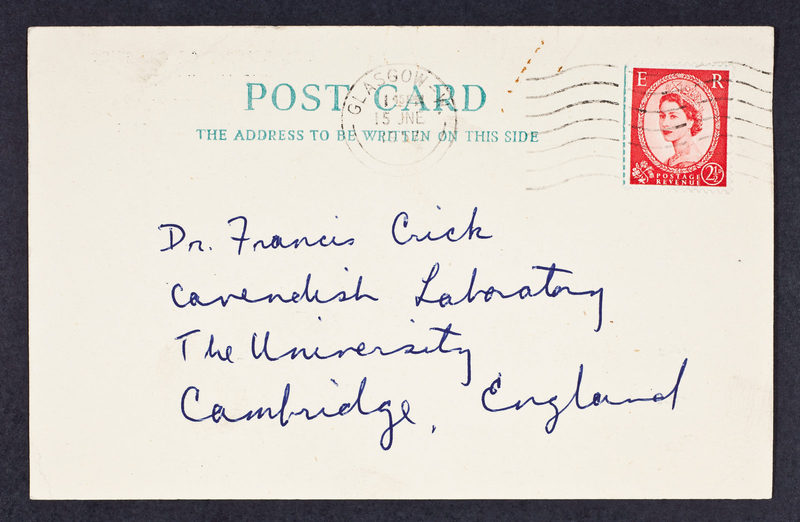 POST CARD
THE ADDRESS TO BE WRITTEN ON THIS SIDE
GLASGOW
15 JNE
E R
POSTAGE
REVENUE
2½
Dr. Francis Crick
Cavendish Laboratory
The University
Cambridge, England